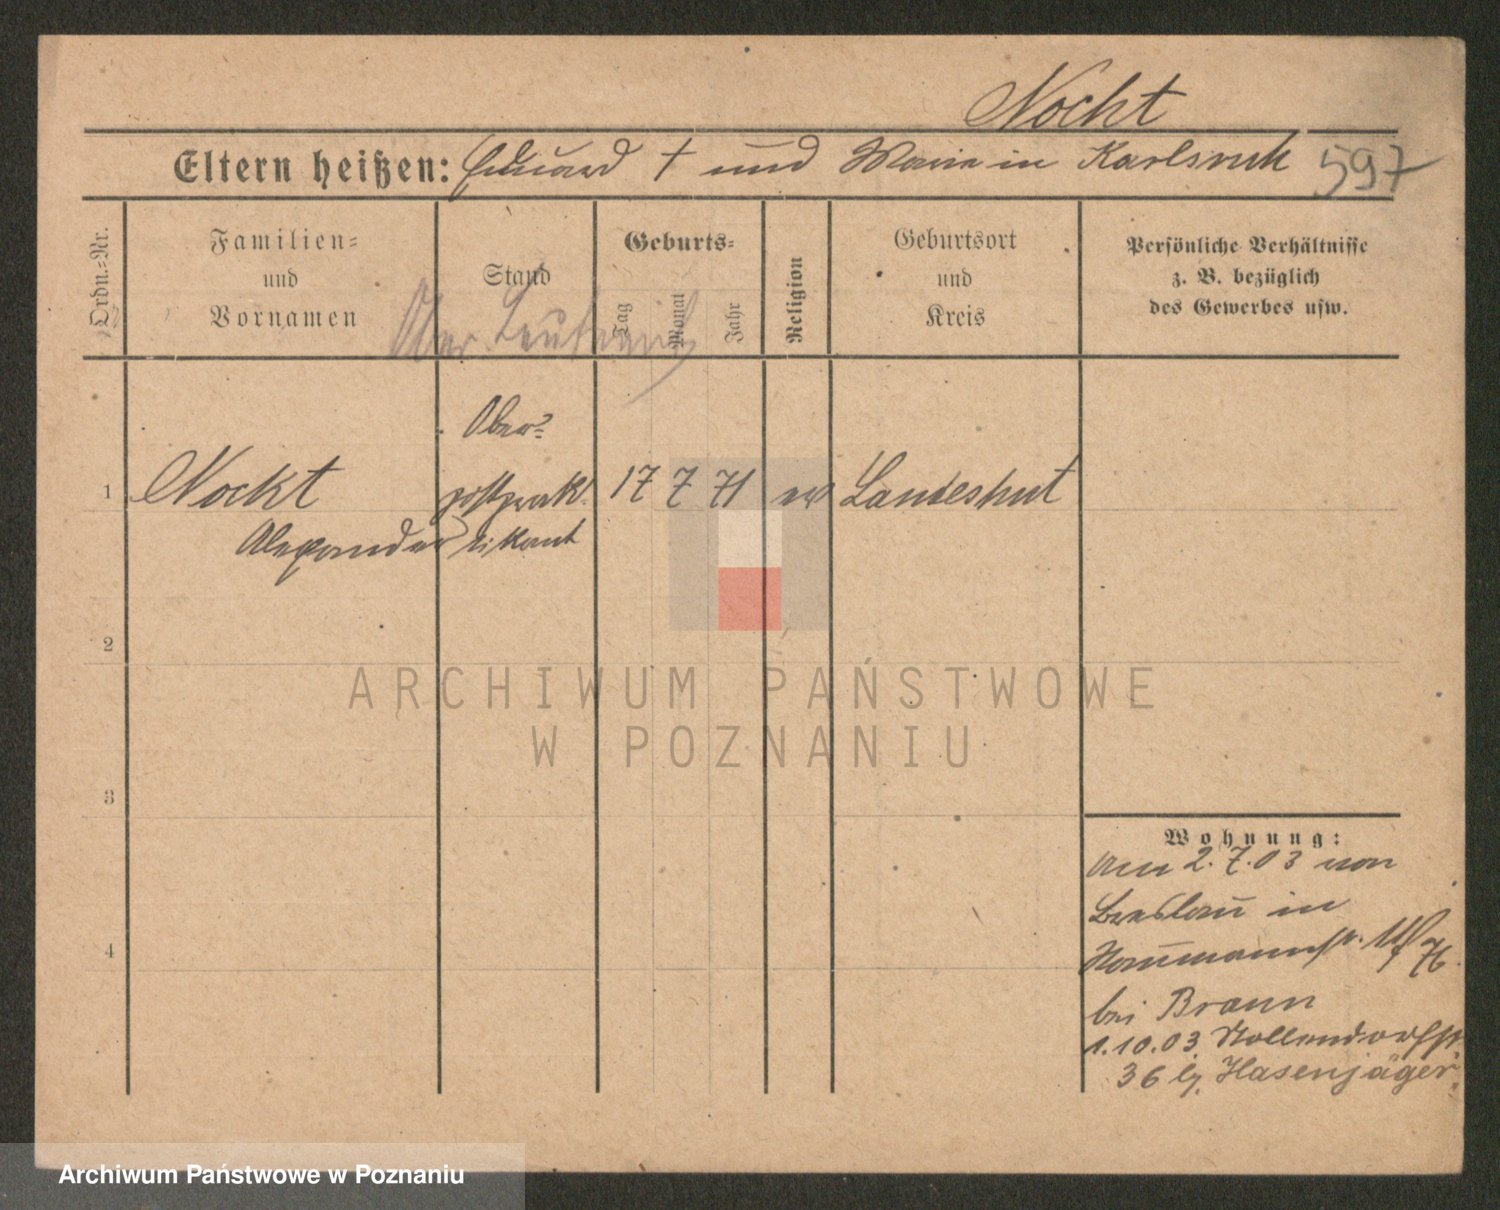 Nocht
Eltern heißen: Eduard † und Marie in Karlsruh 597
Ordn.-Nr.
Familien-
und
Vornamen
Stand
Geburts-
Tag
Monat
Jahr
Religion
Geburtsort
und
Kreis
Persönliche Verhältnisse
z. B. bezüglich
des Gewerbes usw.
Ober
Ober-
1 Nockt postprak- 17 7 71 ev Landeshut
Alexander tikant
2
3
4
Wohnung:
Am 2.7.03 von
Breslau in
Naumannstr.
bei Braun
1.10.03 Nollendorfstr.
36 bj. Hasenjäger.
ARCHIWUM PAŃSTWOWE
W POZNANIU
Archiwum Państwowe w Poznaniu